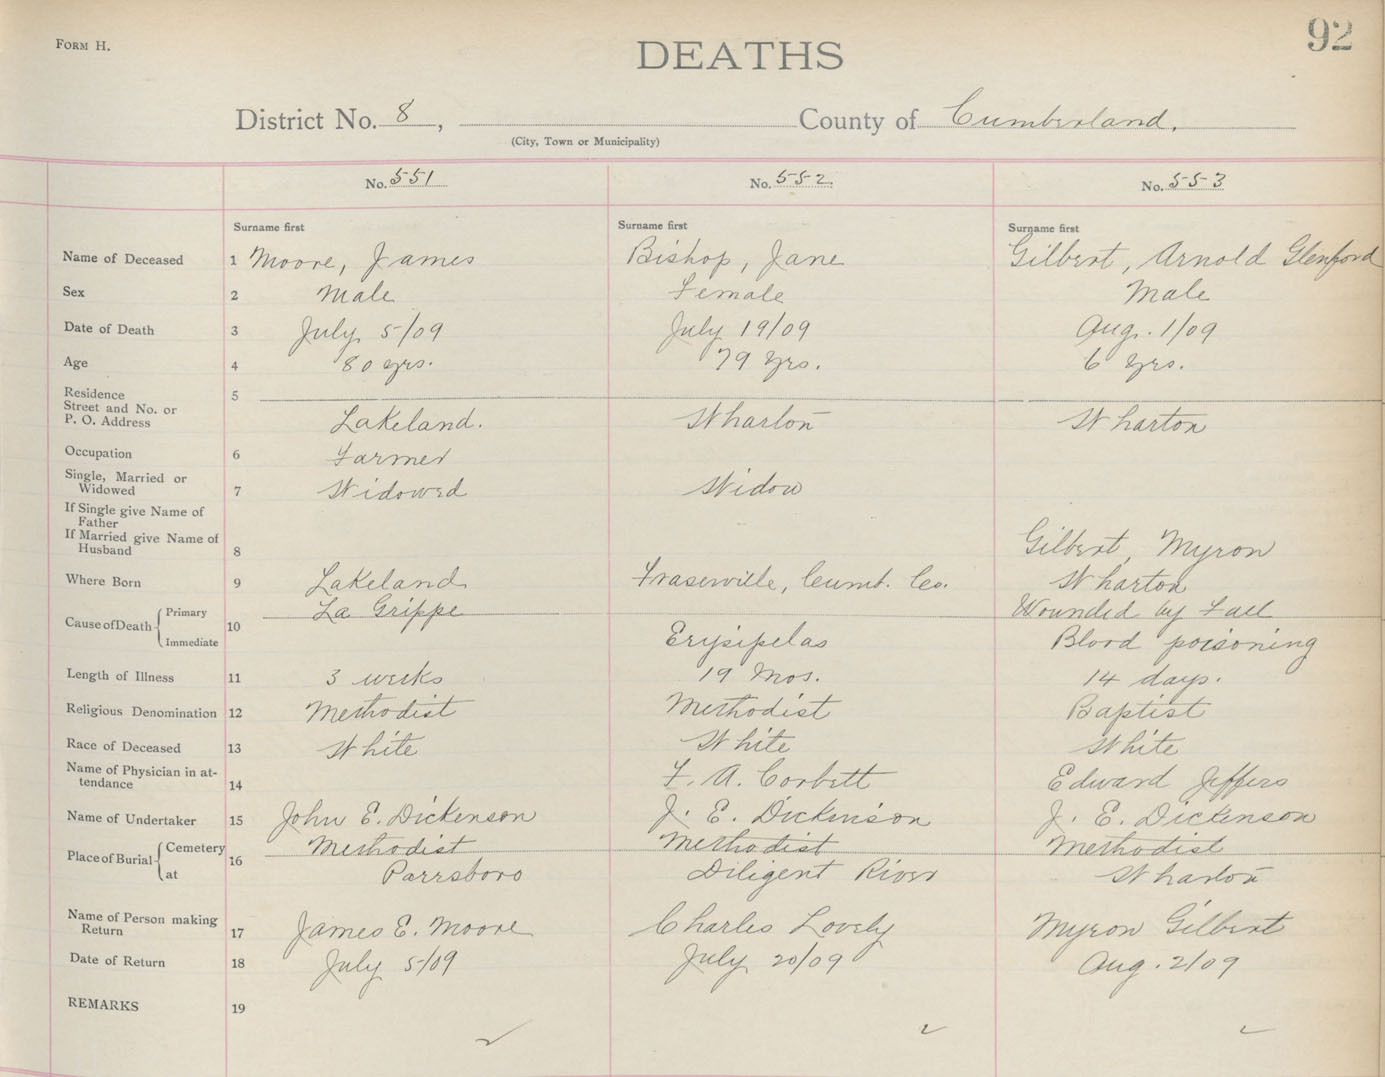 92
FORM H.
DEATHS
District No. 8, County of Cumberland.
(City, Town or Municipality)
No. 551 No. 552. No. 553
Surname first Surname first Surname first
Name of Deceased 1 Moore, James Bishop, Jane Gilbert, Arnold Glenford
Sex 2 Male Female Male
Date of Death 3 July 5/09 July 19/09 Aug. 1/09
Age 4 80 yrs. 79 yrs. 6 yrs.
Residence 5
Street and No. or
P. O. Address Lakeland. Wharton Wharton
Occupation 6 Farmer
Single, Married or
Widowed 7 Widowed Widow
If Single give Name of
Father
If Married give Name of
Husband 8 Gilbert, Myron
Where Born 9 Lakeland Fraserville, Cumb. Co. Wharton
Cause of Death Primary 10 La Grippe Wounded by Fall
Immediate Erysipelas Blood poisoning
Length of Illness 11 3 weeks 19 Mos. 14 days.
Religious Denomination 12 Methodist Methodist Baptist
Race of Deceased 13 White White White
Name of Physician in at-
tendance 14 F. A. Corbett Edward Jeffers
Name of Undertaker 15 John E. Dickenson J. E. Dickinson J. E. Dickenson
Place of Burial Cemetery 16 Methodist Methodist Methodist
at Parrsboro Diligent River Wharton
Name of Person making
Return 17 James E. Moore Charles Lovely Myron Gilbert
Date of Return 18 July 5/09 July 20/09 Aug. 2/09
REMARKS 19